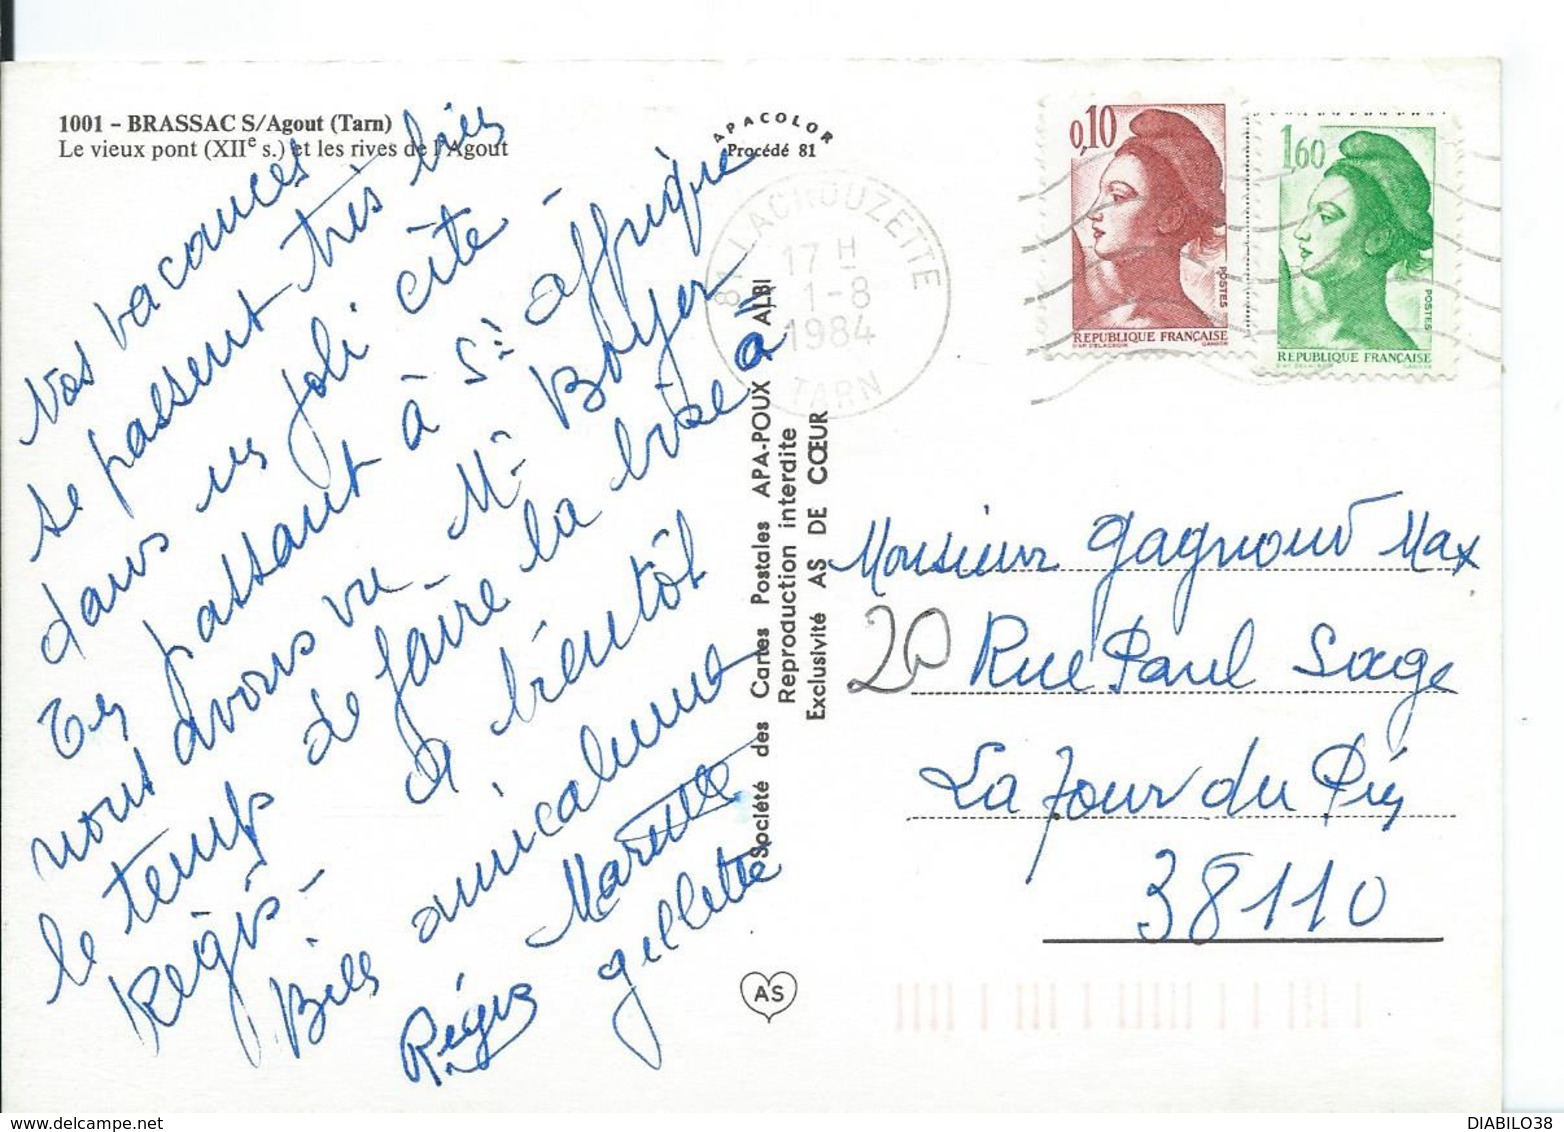 1001 – BRASSAC S/Agout (Tarn)
Le vieux pont (XIIe s.) et les rives de l'Agout
APACOLOR
Procédé 81
Nos vacances
se passent très bien
dans un joli cité
En passant à St affrique
nous avons vu Mr Boyer
le temps de faire la bise à
Régis –
à bientôt
Bien amicalement
Marcelle
Régis gillette
Société des Cartes Postales APA-POUX ALBI
Reproduction interdite
Exclusivité AS DE CŒUR
AS
81 LACROUZETTE
17 H
1-8
1984
TARN
0,10
POSTES
REPUBLIQUE FRANÇAISE
D'AP. DELACROIX GANDON
1,60
POSTES
REPUBLIQUE FRANÇAISE
D'AP. DELACROIX GANDON
Monsieur Gagnoud Max
20 Rue Paul Sage
La Tour du Pin
38110
DIABILO38